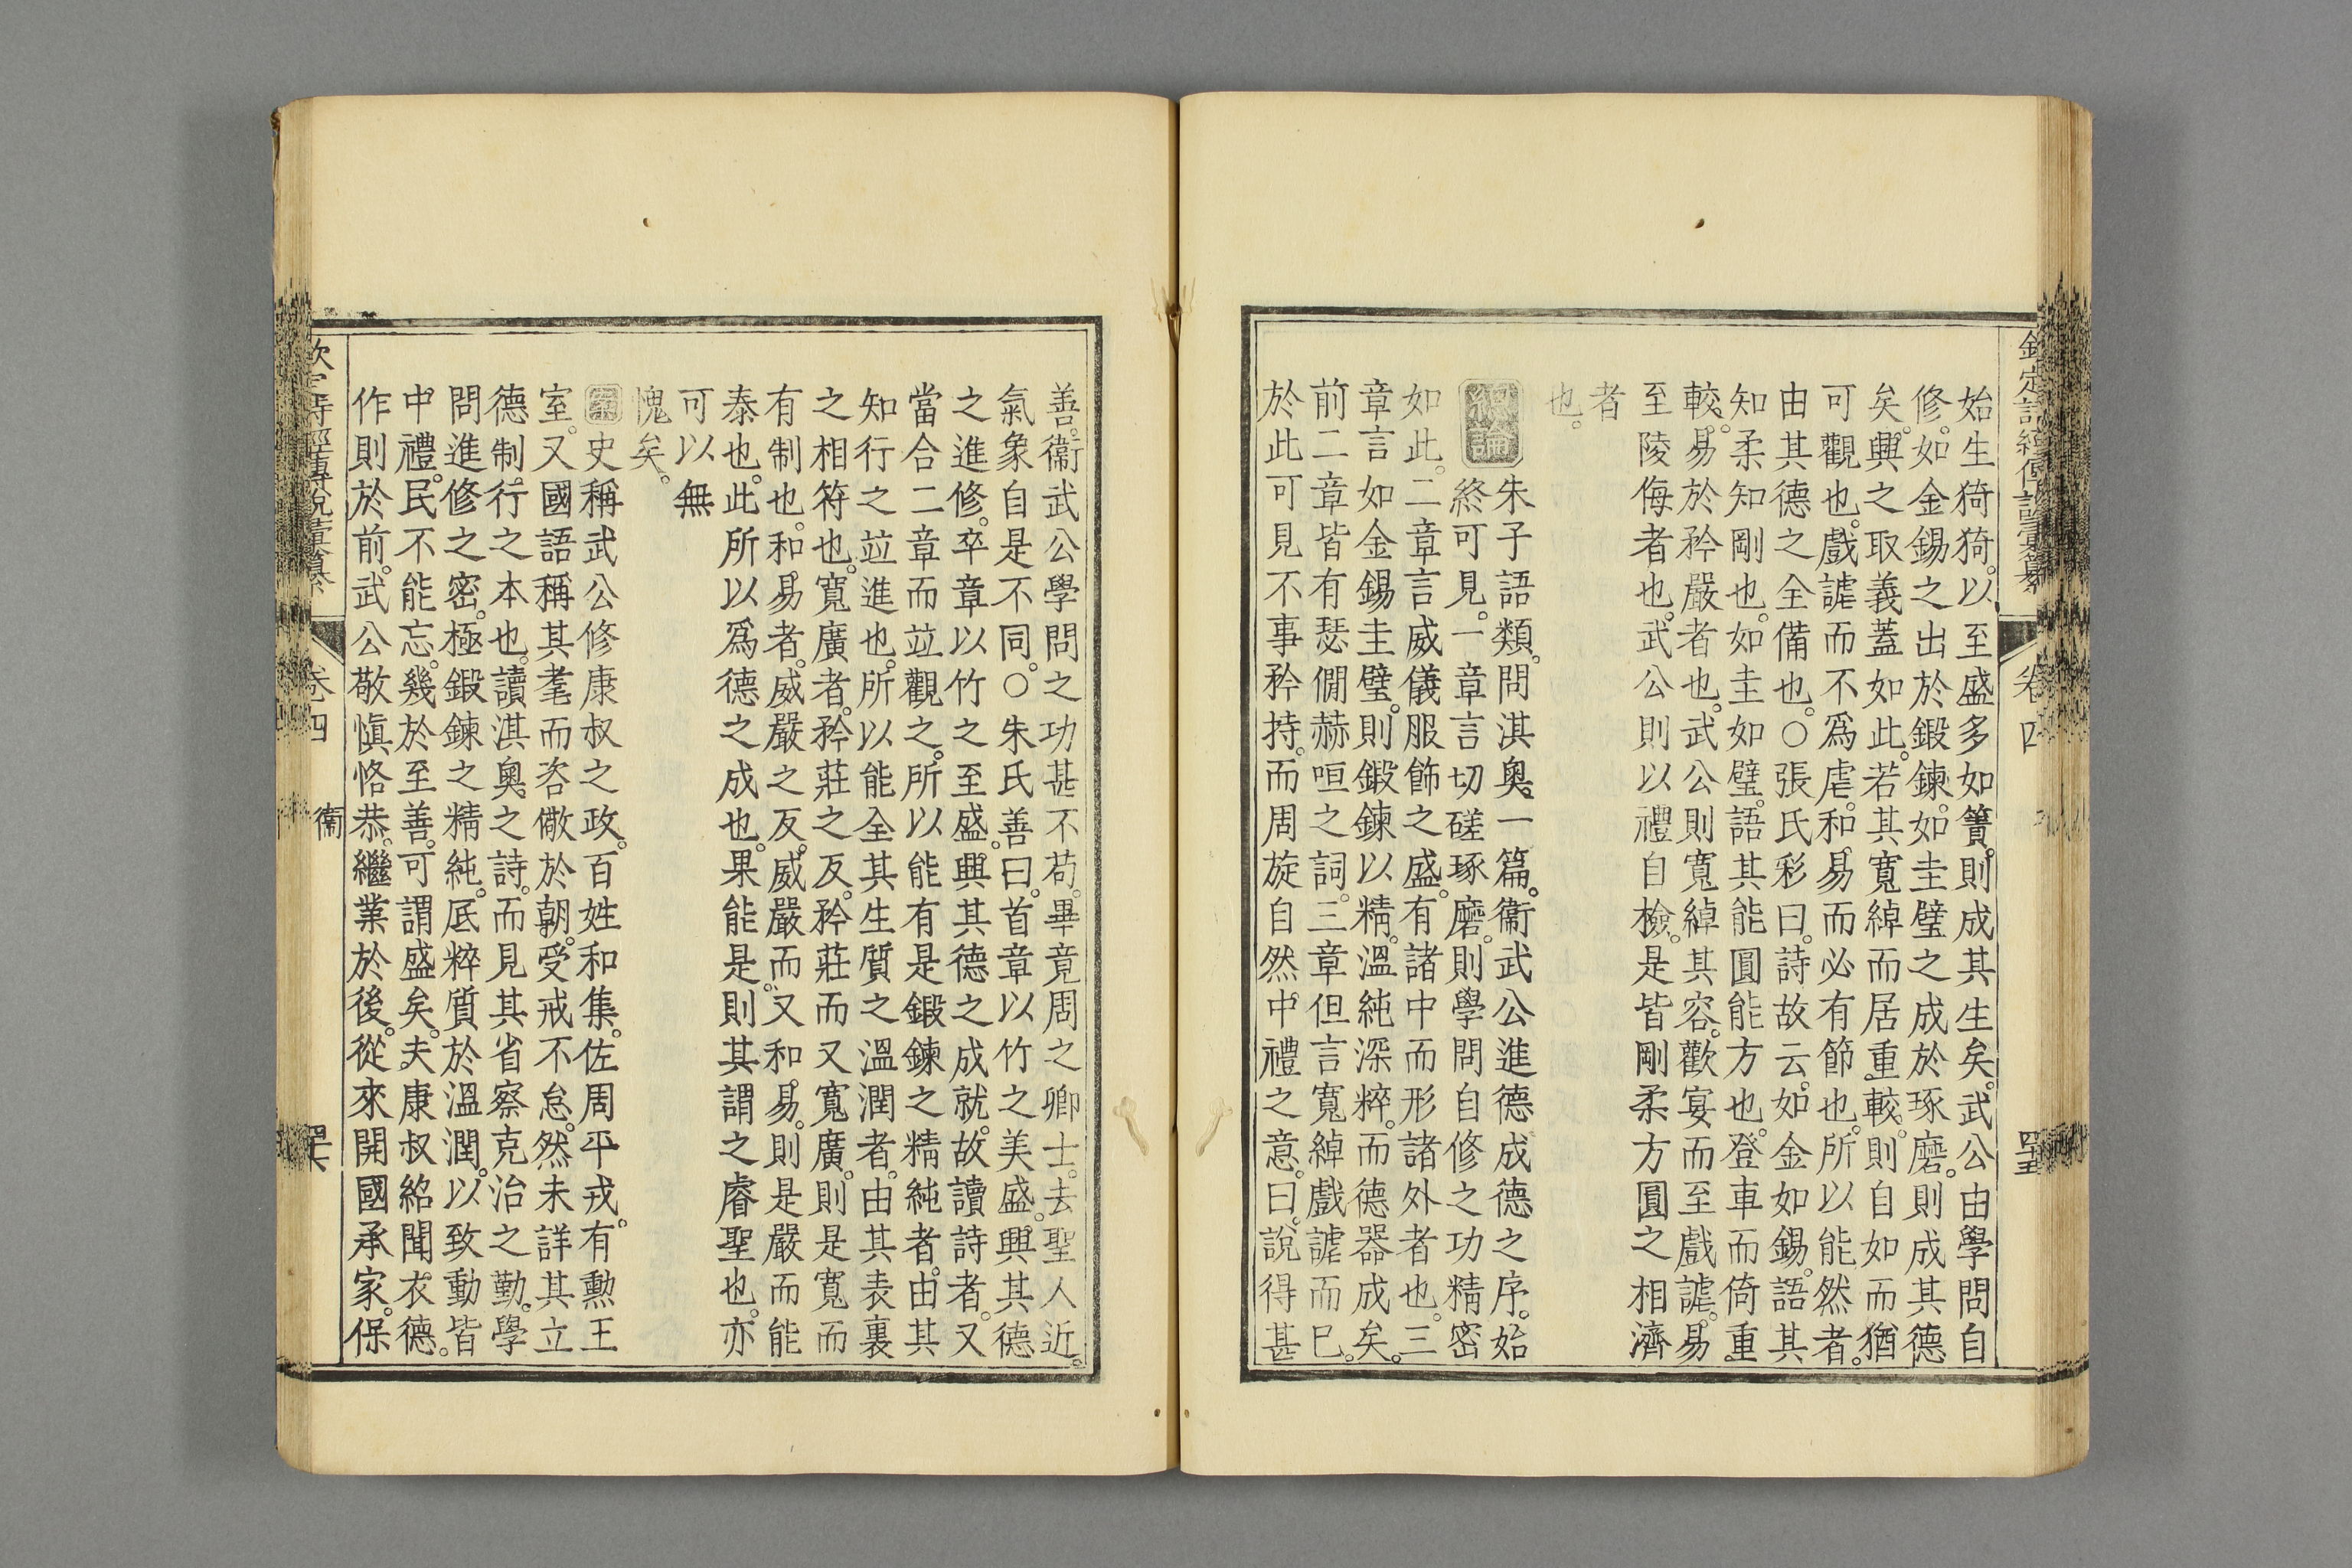 欽定詩經傳說彙纂 卷四 四五
始生猗猗。以至盛多如簀。則成其生矣。武公由學問自
修。如金錫之出於鍛鍊。如圭璧之成於琢磨。則成其德
矣。興之取義蓋如此。若其寬綽而居重較。則自如而猶
可觀也。戲謔而不爲虐。和易而必有節也。所以能然者。
由其德之全備也。○張氏彩曰。詩故云。如金如錫。語其
知柔知剛也。如圭如璧。語其能圓能方也。登車而倚重
較。易於矜嚴者也。武公則寬綽其容。歡宴而至戲謔。易
至陵侮者也。武公則以禮自檢。是皆剛柔方圓之相濟
者
也。
總論
朱子語類。問淇奧一篇。衞武公進德成德之序。始
終可見。一章言切磋琢磨。則學問自修之功精密
如此。二章言威儀服飾之盛。有諸中而形諸外者也。三
章言如金錫圭璧。則鍛鍊以精。溫純深粹。而德器成矣。
前二章皆有瑟僩赫咺之詞。三章但言寬綽戲謔而已。
於此可見不事矜持。而周旋自然中禮之意。曰。說得甚
善。衞武公學問之功甚不苟。畢竟周之卿士。去聖人近。
氣象自是不同。○朱氏善曰。首章以竹之美盛。興其德
之進修。卒章以竹之至盛。興其德之成就。故讀詩者。又
當合二章而竝觀之。所以能有是鍛鍊之精純者。由其
知行之竝進也。所以能全其生質之溫潤者。由其表裏
之相符也。寬廣者。矜莊之反。矜莊而又寬廣。則是寬而
有制也。和易者。威嚴之反。威嚴而又和易。則是嚴而能
泰也。此所以爲德之成也。果能是。則其謂之睿聖也。亦
可以無
愧矣。
案史稱武公修康叔之政。百姓和集。佐周平戎。有勳王
室。又國語稱其耄而咨儆於朝。受戒不怠。然未詳其立
德制行之本也。讀淇奧之詩。而見其省察克治之勤。學
問進修之密。極鍛鍊之精純。底粹質於溫潤。以致動皆
中禮。民不能忘。幾於至善。可謂盛矣。夫康叔紹聞衣德。
作則於前。武公敬愼恪恭。繼業於後。從來開國承家。保
欽定詩經傳說彙纂 卷四 衞 四六